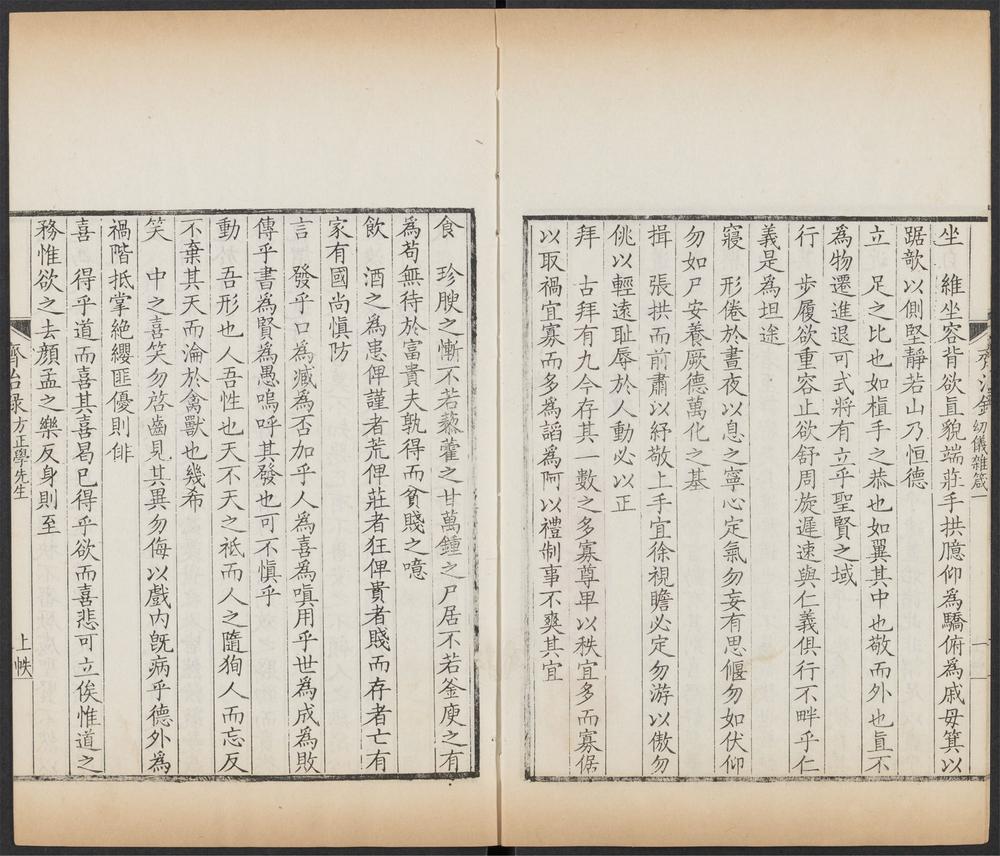 齊治錄 幼儀雜箴 一
坐　維坐容背欲直貌端莊手拱臆仰為驕俯為戚毋箕以
踞欹以側堅靜若山乃恒德
立　足之比也如植手之恭也如翼其中也敬而外也直不
為物遷進退可式將有立乎聖賢之域
行　步履欲重容止欲舒周旋遲速與仁義俱行不畔乎仁
義是為坦途
寢　形倦於晝夜以息之寧心定氣勿妄有思偃勿如伏仰
勿如尸安養厥德萬化之基
揖　張拱而前肅以紓敬上手宜徐視瞻必定勿游以傲勿
佻以輕遠耻辱於人動必以正
拜　古拜有九今存其一數之多寡尊卑以秩宜多而寡倨
以取禍宜寡而多為諂為阿以禮制事不爽其宜
食　珍腴之慚不若藜藿之甘萬鍾之尸居不若釜庾之有
為苟無待於富貴夫孰得而貧賤之噫
飲　酒之為患俾謹者荒俾莊者狂俾貴者賤而存者亡有
家有國尚慎防
言　發乎口為臧為否加乎人為喜為嗔用乎世為成為敗
傳乎書為賢為愚嗚呼其發也可不慎乎
動　吾形也人吾性也天不天之祇而人之隨狥人而忘反
不棄其天而淪於禽獸也幾希
笑　中之喜笑勿啓齒見其異勿侮以戲内旣病乎德外為
禍階抵掌絶纓匪優則俳
喜　得乎道而喜其喜曷已得乎欲而喜悲可立俟惟道之
務惟欲之去顔孟之樂反身則至
齊治錄 方正學先生 上帙